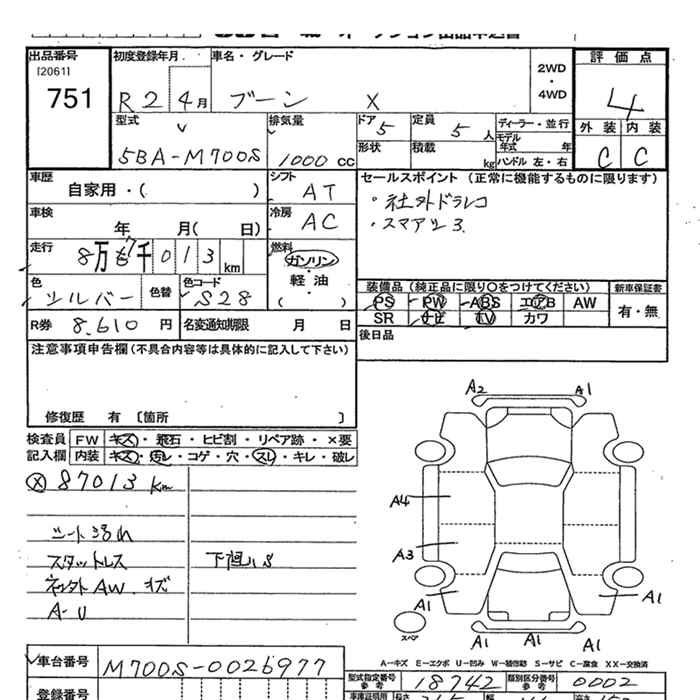 出品番号 初度登録年月 車名・グレード 2WD ・ 4WD 評価点
[2061]
751 R2 4月 ブーン X 4
型式 排気量 ドア 5 定員 5人 ディーラー・並行 外装 内装
モデル年式 年
5BA-M700S 1000 cc 形状 積載 kg ハンドル 左・右 C C
車歴 シフト セールスポイント (正常に機能するものに限ります)
自家用・( ) AT ・社外ドラレコ
車検 冷房 ・スマアシ3.
年 月( 日) AC
走行 8万 7千 013 km 燃料
ガソリン
・
軽油
・
( )
色 色替 色コード 装備品 (純正品に限り○をつけてください) 新車保証書
シルバー S28 PS PW ABS エアB AW 有・無
R券 8,610 円 名変通知期限 月 日 SR ナビ TV カワ
後日品
注意事項申告欄 (不具合内容等は具体的に記入して下さい)
修復歴 有 〔箇所 〕
検査員 FW キズ・飛石・ヒビ割・リペア跡・×要
記入欄 内装 キズ・汚れ・コゲ・穴・スレ・キレ・破レ
Ⓧ 87013 km
シート汚れ
スタットレス 下廻りS
ネック外AW.キズ
A-U
A2 A1
A4
A3
A1 A1
スペア A1 A1 A1
A-キズ E-エクボ U-凹み W-補修跡 S-サビ C-腐食 XX-交換済
車台番号 M700S-0026977
型式指定番号 参考 18742 類別区分番号 参考 0002
登録番号